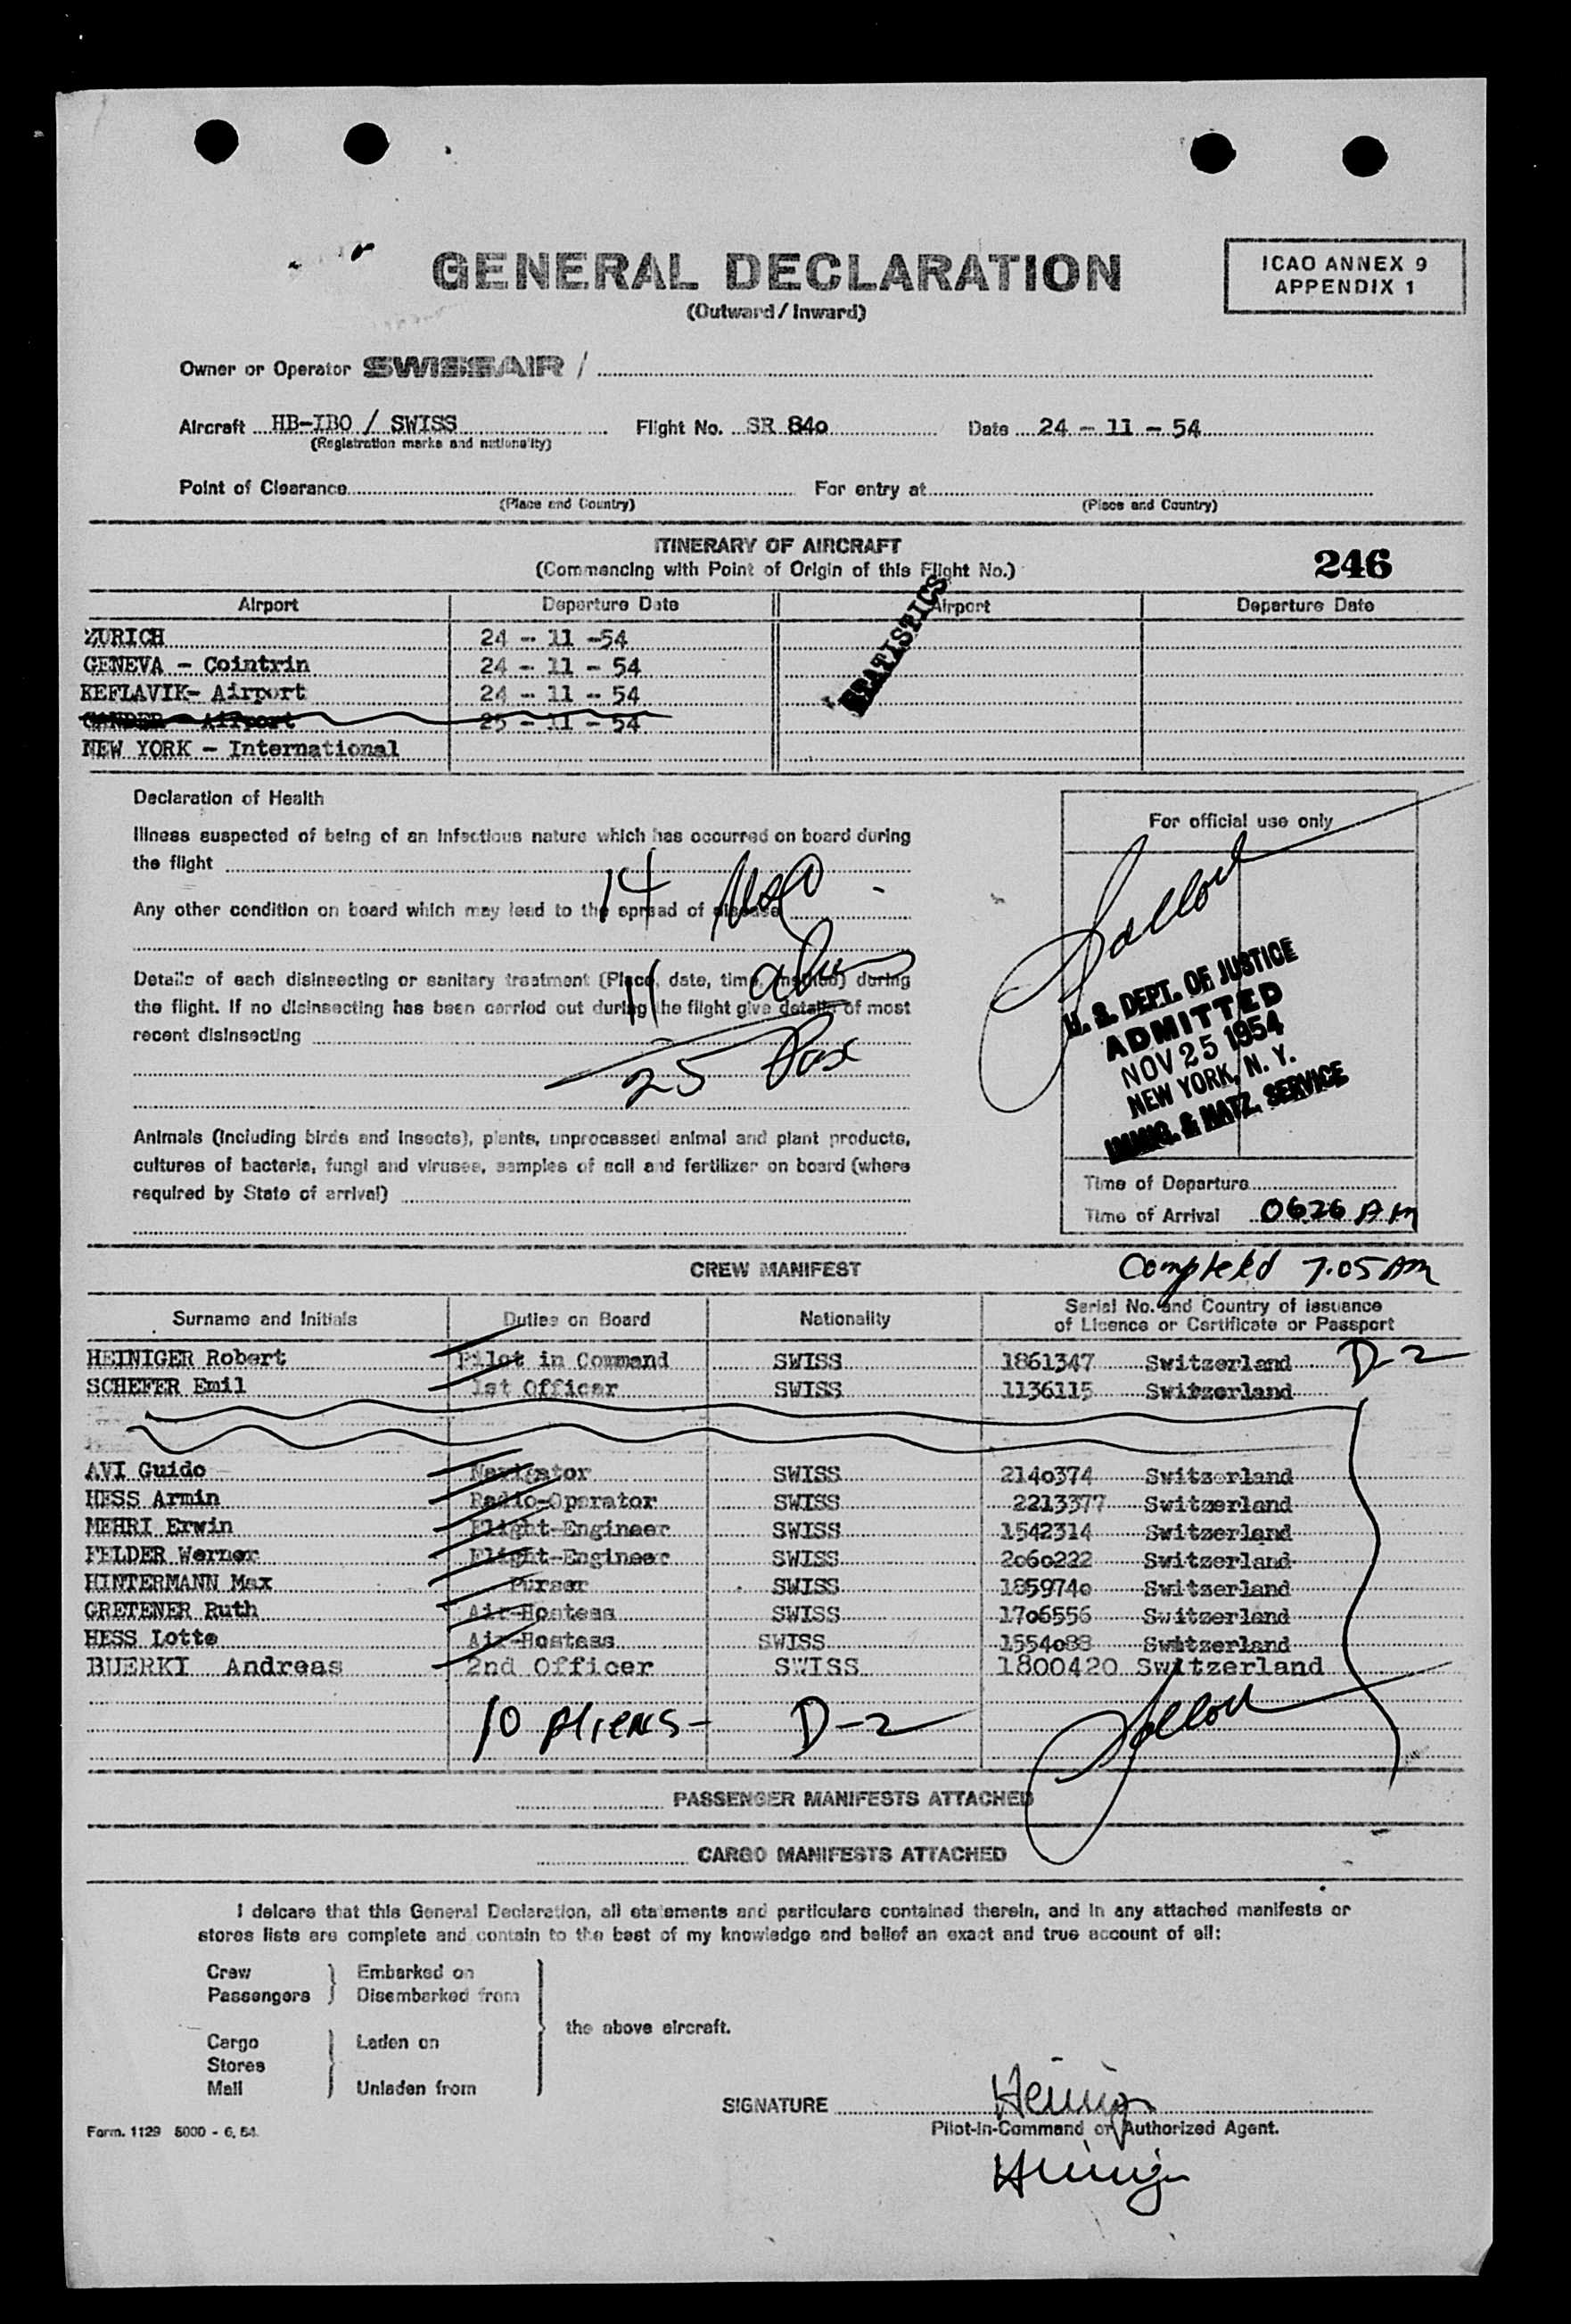 GENERAL DECLARATION
(Outward / Inward)
ICAO ANNEX 9
APPENDIX 1
Owner or Operator SWISSAIR /
Aircraft HB-IBO / SWISS Flight No. SR 84o Date 24 - 11 - 54
(Registration marks and nationality)
Point of Clearance For entry at
(Place and Country) (Place and Country)
ITINERARY OF AIRCRAFT
(Commencing with Point of Origin of this Flight No.)
246
Airport Departure Date Airport Departure Date
STATISTICS
ZURICH 24 - 11 -54
GENEVA - Cointrin 24 - 11 - 54
KEFLAVIK- Airport 24 - 11 - 54
GANDER - Airport 25 - 11 - 54
NEW YORK - International
Declaration of Health
Illness suspected of being of an infectious nature which has occurred on board during
the flight
Any other condition on board which may lead to the spread of disease
14
Details of each disinsecting or sanitary treatment (Place, date, time, method) during
the flight. If no disinsecting has been carried out during the flight give details of most
recent disinsecting
11
25 Pax
Animals (including birds and insects), plants, unprocessed animal and plant products,
cultures of bacteria, fungi and viruses, samples of soil and fertilizer on board (where
required by State of arrival)
For official use only
U. S. DEPT. OF JUSTICE
ADMITTED
NOV 25 1954
NEW YORK, N. Y.
IMMIG. & NATZ. SERVICE
Time of Departure
Time of Arrival 0626 AM
CREW MANIFEST
Completed 7.05 AM
Surname and Initials Duties on Board Nationality Serial No. and Country of issuance
of Licence or Certificate or Passport
HEINIGER Robert Pilot in Command SWISS 1861347 Switzerland D-2
SCHEFER Emil 1st Officer SWISS 1136115 Switzerland
AVI Guido Navigator SWISS 214o374 Switzerland
HESS Armin Radio-Operator SWISS 2213377 Switzerland
MEHRI Erwin Flight-Engineer SWISS 1542314 Switzerland
FELDER Werner Flight-Engineer SWISS 2o6o222 Switzerland
HINTERMANN Max Purser SWISS 185974o Switzerland
GRETENER Ruth Air-Hostess SWISS 17o6556 Switzerland
HESS Lotte Air-Hostess SWISS 1554o88 Switzerland
BUERKI Andreas 2nd Officer SWISS 1800420 Switzerland
10 Aliens - D-2
PASSENGER MANIFESTS ATTACHED
CARGO MANIFESTS ATTACHED
I delcare that this General Declaration, all statements and particulars contained therein, and in any attached manifests or
stores lists are complete and contain to the best of my knowledge and belief an exact and true account of all:
Crew Embarked on
Passengers Disembarked from
the above aircraft.
Cargo Laden on
Stores
Mail Unladen from
SIGNATURE
Pilot-in-Command or Authorized Agent.
Form. 1129 5000 - 6. 54.